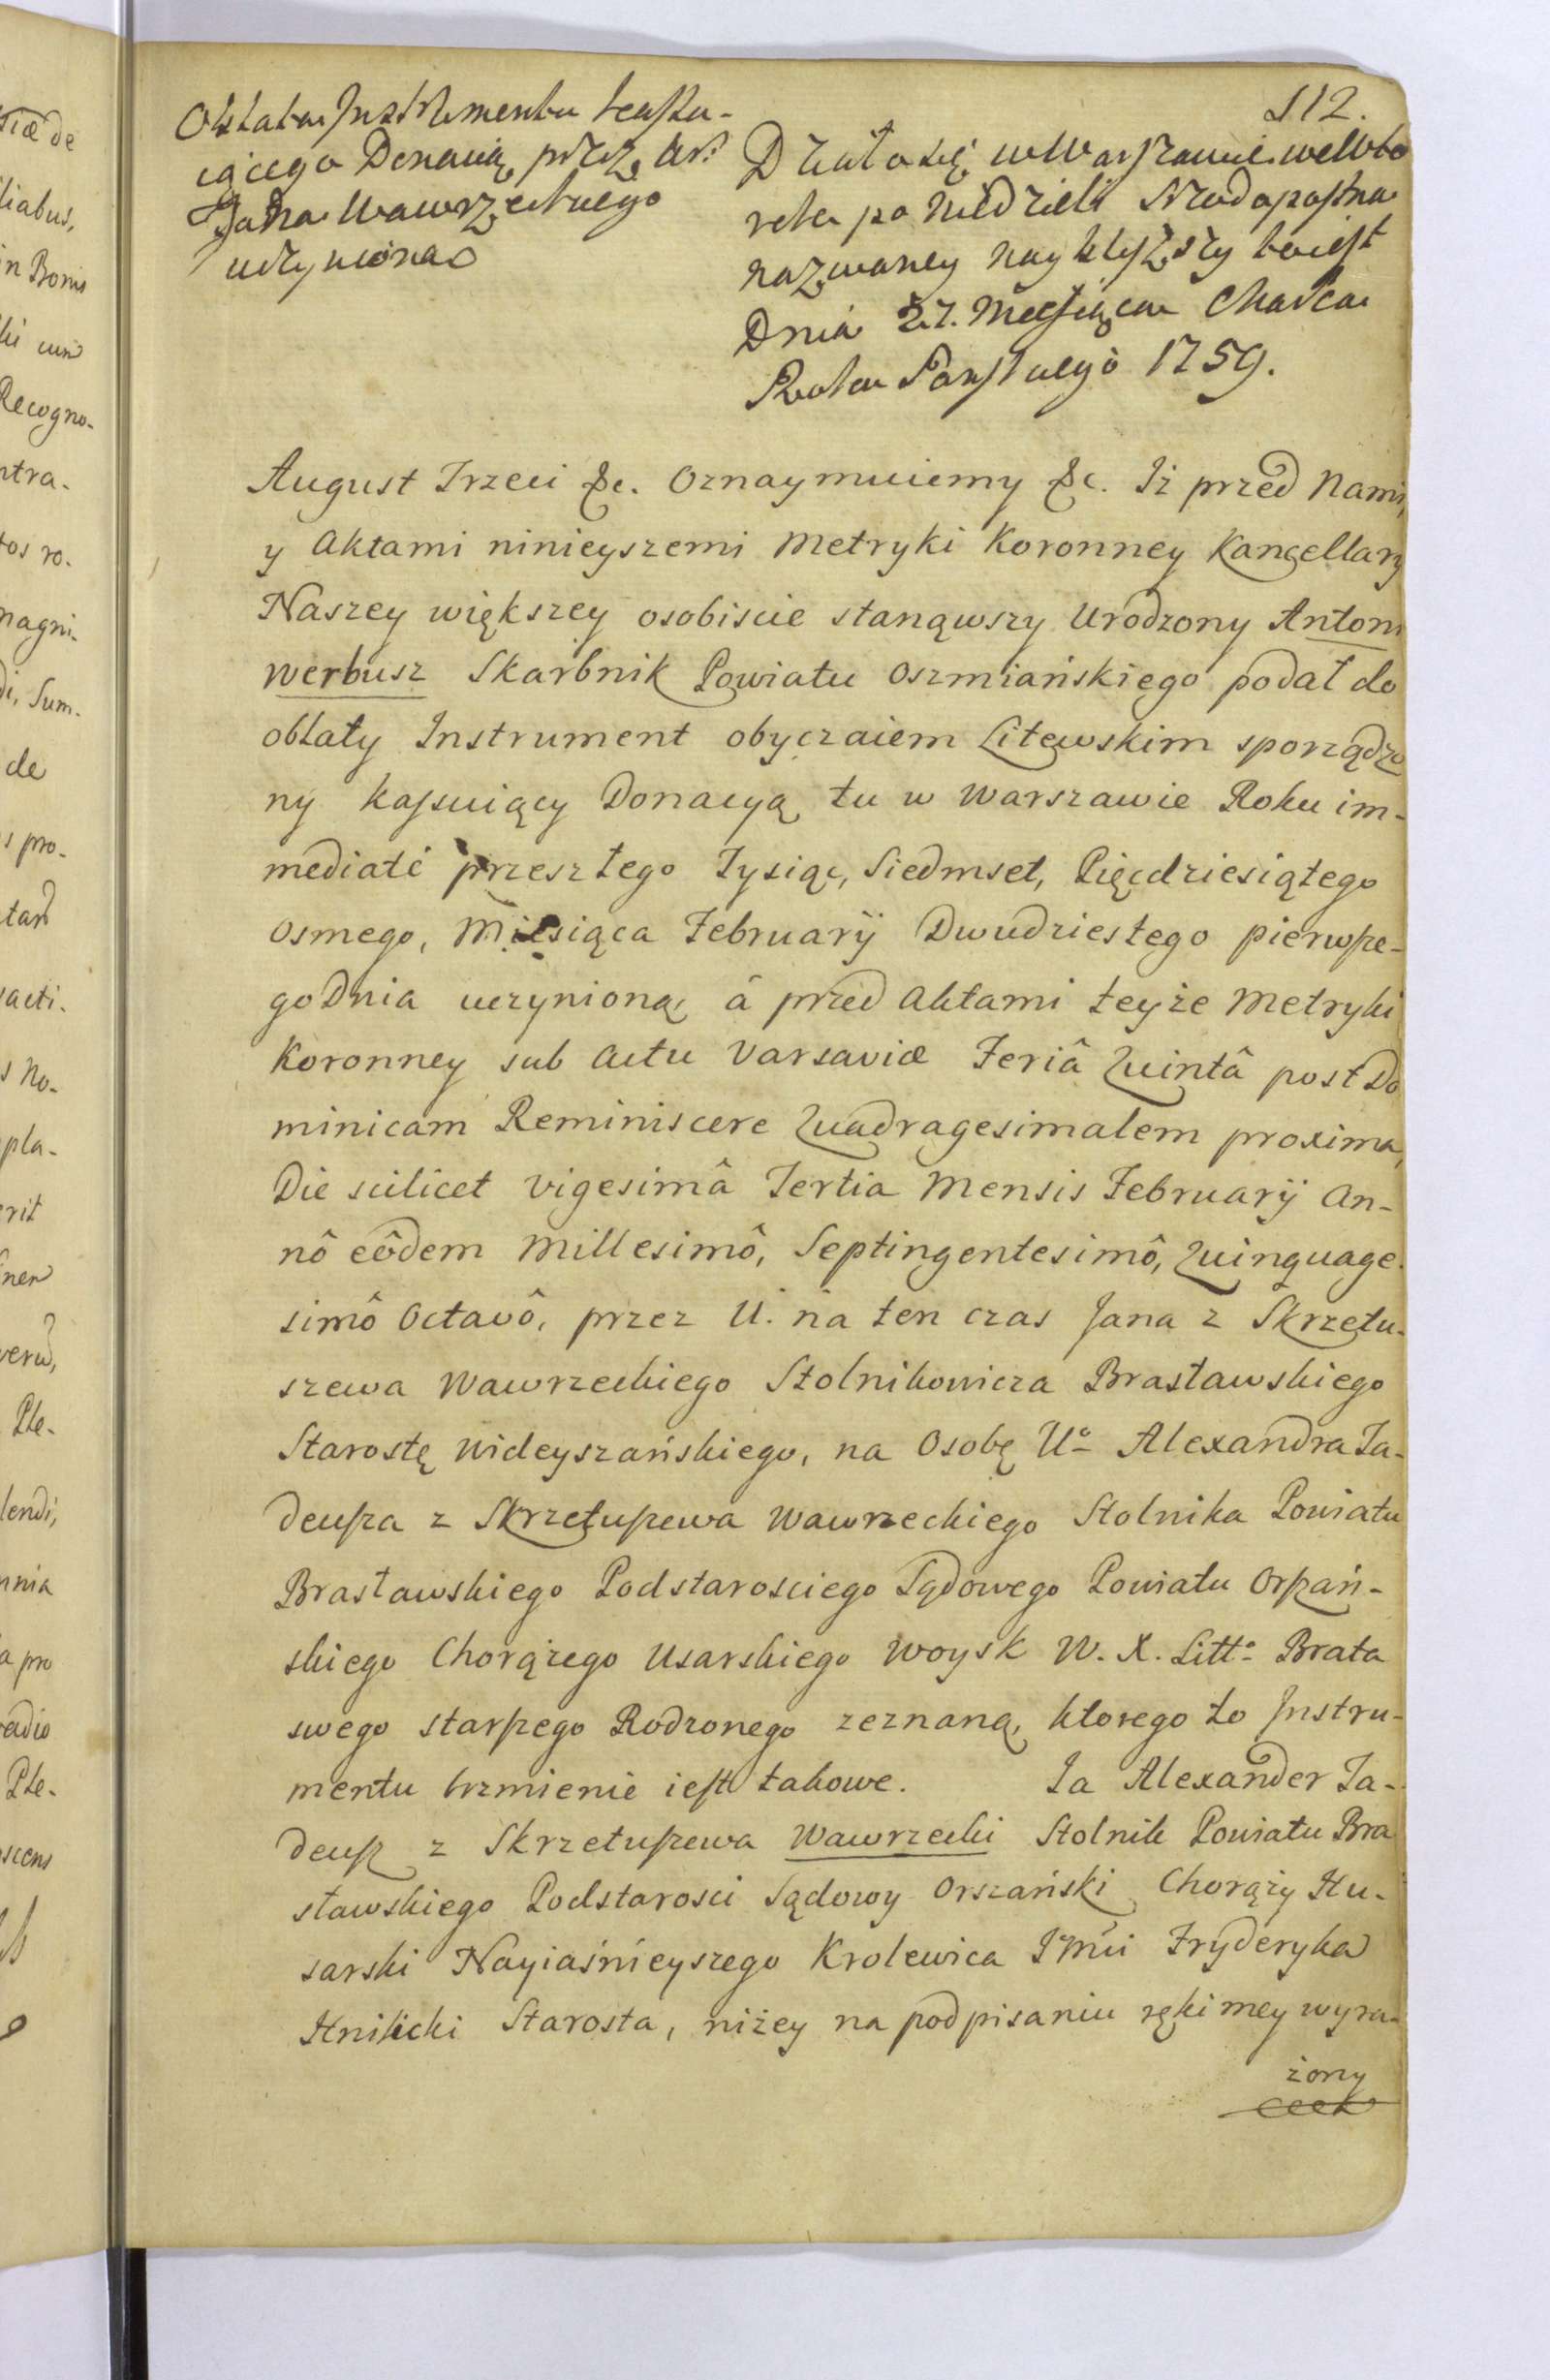 112.
Oblata Instrumentu kassu-
iącego Donacią przez Ur:
Jana Wawrzeckiego
uczynioną
Działo się w Warszawie we Wto
rek po Niedzieli Srzodopostna
nazwaney naybliższy to iest
Dnia 27. Miesiąca Marca
Roku Pańskiego 1759.
August Trzeci &c. Oznaymuiemy &c. Iż przed Nami,
y Aktami ninieyszemi Metryki Koronney Kancellary
Naszey większey osobiscie stanąwszy Urodzony Antoni
Werbusz Skarbnik Powiatu Oszmiańskiego podał do
oblaty Instrument obyczaiem Litewskim sporządzo
ny kassuiący Donacyą tu w Warszawie Roku im-
mediate przeszłego Tysiąc, Siedmset, Pięcdziesiątego
Osmego, Miesiąca February Dwudziestego pierwsze-
go Dnia uczynioną, â przed Aktami teyże Metryki
Koronney sub Actu Varsaviæ Feriâ Quintâ post Do
minicam Reminiscere Quadragesimalem proxima,
Die scilicet vigesimâ Tertia Mensis February An-
nô eôdem Millesimô, Septingentesimô, Quinquage-
simô Octavô, przez U. na ten czas Jana z Skrzetu-
szewa Wawrzeckiego Stolnikowicza Brasławskiego
Starostę Wideyszańskiego, na Osobę Uº Alexandra Ta-
deusza z Skrzetuszewa Wawrzeckiego Stolnika Powiatu
Brasławskiego Podstarosciego Sądowego Powiatu Orszań-
skiego Chorążego Usarskiego Woysk W. X. Littº Brata
swego starszego Rodzonego zeznaną, ktorego to Instru-
mentu brzmienie iest takowe. Ia Alexander Ta-
deusz z Skrzetuszewa Wawrzecki Stolnik Powiatu Bra
sławskiego Podstarosci Sądowy Orszański Chorąży Hu-
sarski Nayiaśnieyszego Krolewica Imci Fryderyka
Hnilicki Starosta, niżey na podpisaniu ręki mey wyra-
żony